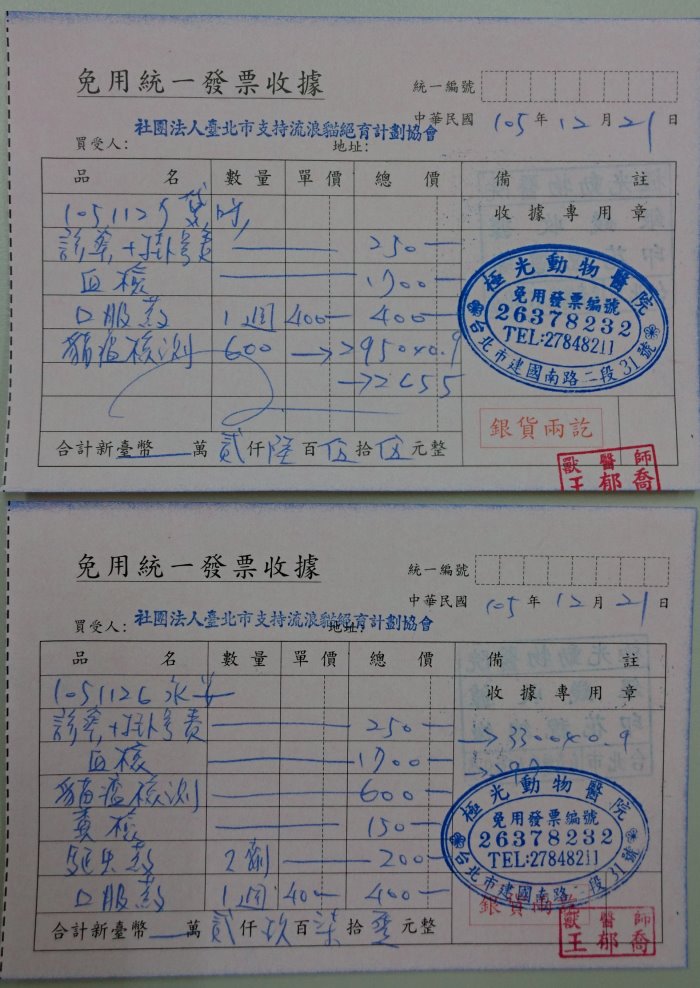 免用統一發票收據
統一編號
中華民國 105 年 12 月 21 日
社團法人臺北市支持流浪貓絕育計劃協會
買受人： 地址：
品 名 數量 單價 總價 備 註
1051125 收據專用章
診察+掛號費 250
血檢 1700
口服藥 1週 400 400
貓瘟檢測 600 → 2950×0.9
→ 2655
極光動物醫院
免用發票編號
26378232
TEL:27848211
台北市建國南路二段31號
銀貨兩訖
合計新臺幣 萬貳仟陸百伍拾伍元整
獸醫師
王郁喬
免用統一發票收據
統一編號
中華民國 105 年 12 月 21 日
社團法人臺北市支持流浪貓絕育計劃協會
買受人： 地址：
品 名 數量 單價 總價 備 註
1051126 收據專用章
診察+掛號費 250 → 3300×0.9
血檢 1700
貓瘟檢測 600
糞檢 150
驅虫藥 2劑 200
口服藥 1週 400 400
極光動物醫院
免用發票編號
26378232
TEL:27848211
台北市建國南路二段31號
銀貨兩訖
合計新臺幣 萬貳仟玖百柒拾零元整
獸醫師
王郁喬